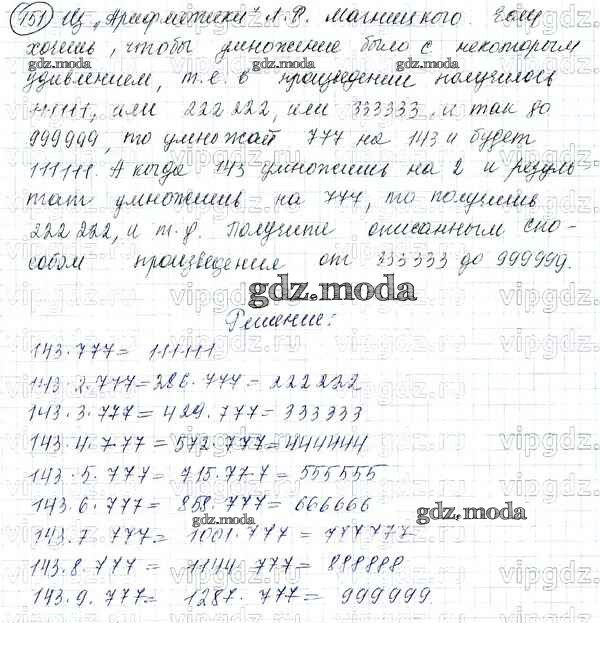 151 Из „Арифметики" Л. Ф. Магницкого. Если
хочешь, чтобы умножение было с некоторым
удивлением, т.е. в произведении получилось
111111, или 222222, или 333333, и так до
999999, то умножай 777 на 143 и будет
111111. А когда 143 умножишь на 2 и резуль-
тат умножишь на 777, то получишь
222222, и т.д. Получите описанным спо-
собом произведения от 333333 до 999999.
gdz.moda
Решение:
143·777= 111111
143·2·777=286·777=222222
143·3·777=429·777=333333
143·4·777=572·777=444444
143·5·777= 715·777=555555
143·6·777= 858·777=666666
143·7·777= 1001·777=777777
143·8·777= 1144·777=888888
143·9·777= 1287·777= 999999